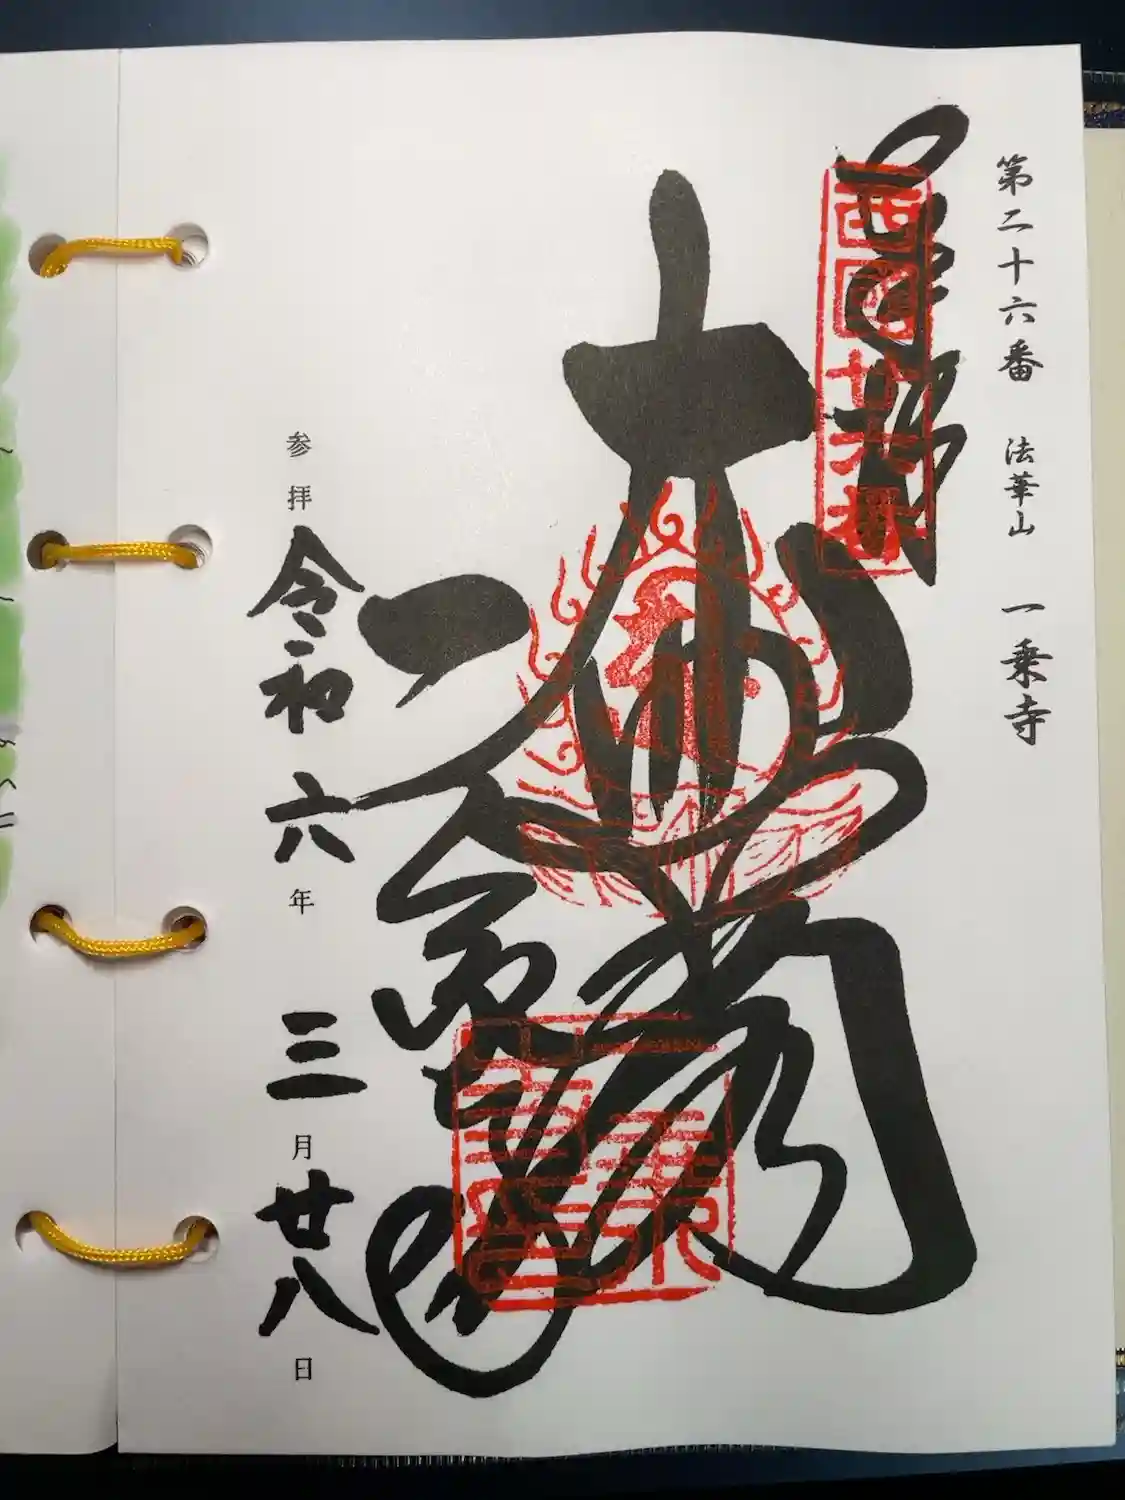 第二十六番 法華山 一乗寺
奉拝
西國廿六番
大悲閣
一乗寺
参拝 令和六年 三月廿八日